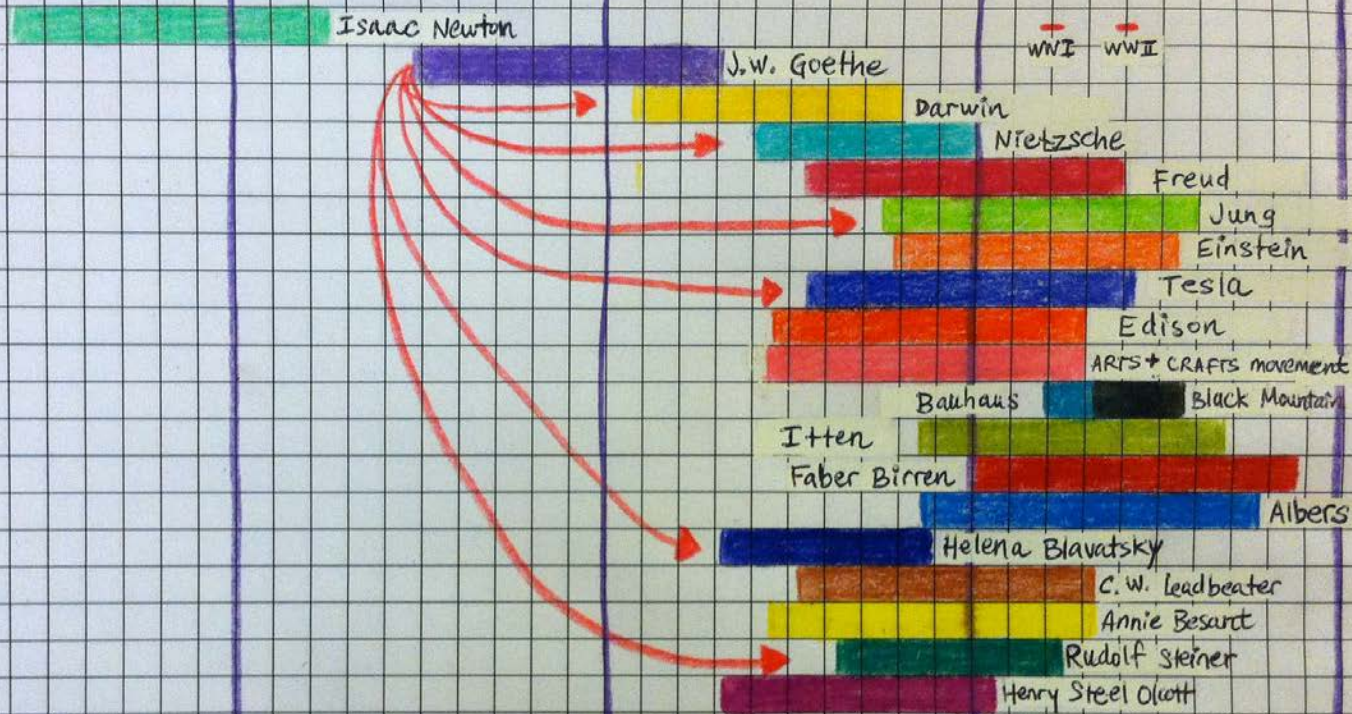 Isaac Newton
WWI WWII
J.W. Goethe
Darwin
Nietzsche
Freud
Jung
Einstein
Tesla
Edison
ARTS + CRAFTS movement
Bauhaus Black Mountain
Itten
Faber Birren
Albers
Helena Blavatsky
C.W. Leadbeater
Annie Besant
Rudolf Steiner
Henry Steel Olcott